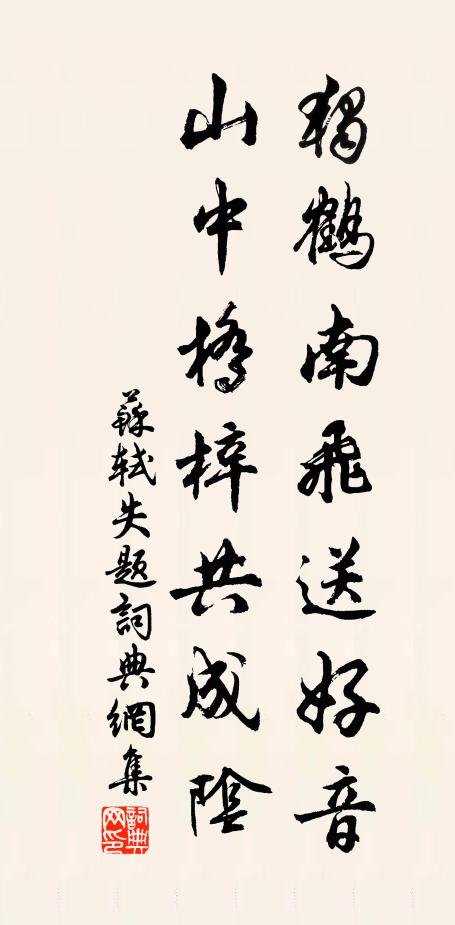 獨鶴南飛送好音
山中橋梓共成陰
蘇軾失題詞典網集
詞典網印